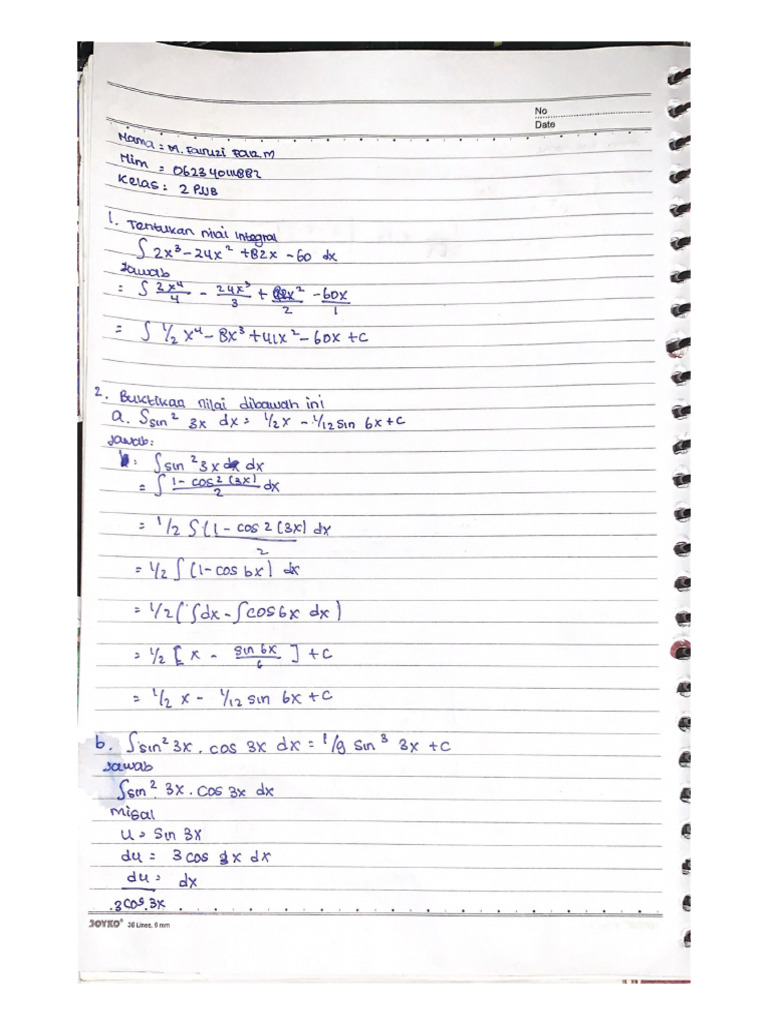 No
Date
Nama : M. Fairuzi
Nim = 062340111882
Kelas : 2 PJJB
1. Tentukan nilai integral
∫ 2x³ - 24x² + 82x - 60 dx
Jawab
= ∫ 2x⁴/4 - 24x³/3 + 82x²/2 - 60x/1
= ∫ 1/2 x⁴ - 8x³ + 41x² - 60x + C
2. Buktikan nilai dibawah ini
a. ∫sin² 3x dx = 1/2x - 1/12 sin 6x + C
Jawab:
: ∫sin² 3x dx
= ∫ 1 - cos 2(3x)/2 dx
= 1/2 ∫(1 - cos 2(3x)/2 dx
= 1/2 ∫(1-cos 6x) dx
= 1/2 (∫dx - ∫cos 6x dx)
= 1/2 [x - sin 6x/6] + C
= 1/2 x - 1/12 sin 6x + C
b. ∫sin² 3x . cos 3x dx = 1/9 sin³ 3x + C
Jawab
∫sin² 3x . cos 3x dx
misal
u = sin 3x
du = 3 cos 3x dx
du/3cos.3x = dx
JOYKO® 36 Lines, 6 mm